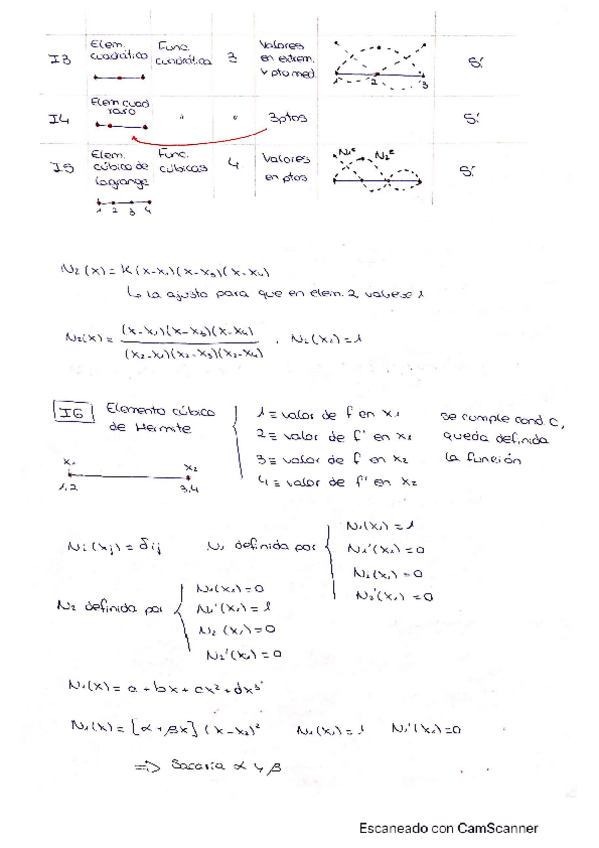 I3 Elem. cuadrático Func. cuadrática 3 Valores en extrem. y pto med. 2 3 Sí
I4 Elem cuad raro " " 3 ptos Sí
I5 Elem. cúbico de Lagrange Func. cúbicas 4 Valores en ptos N₁ᵉ N₂ᵉ Sí
1 2 3 4
N₂(x) = K(x-x₁)(x-x₃)(x-x₄)
↳ la ajusto para que en elem. 2 valiese 1
N₂(x) = (x-x₁)(x-x₃)(x-x₄) / (x₂-x₁)(x₂-x₃)(x₂-x₄) . N₂(x₂)=1
I6 Elemento cúbico de Hermite
1 ≡ valor de f en x₁
2 ≡ valor de f' en x₁
3 ≡ valor de f en x₂
4 ≡ valor de f' en x₂
se cumple cond. C,
queda definida
la función
x₁ x₂
1,2 3,4
Ni(xj) = δij N₁ definida por
N₁(x₁) = 1
N₁'(x₁) = 0
N₁(x₂) = 0
N₁'(x₂) = 0
N₂ definida por
N₂(x₁) = 0
N₂'(x₁) = 1
N₂(x₂) = 0
N₂'(x₂) = 0
N₁(x) = a + bx + cx² + dx³
N₁(x) = [α + βx] (x-x₂)² N₁(x₁) = 1 N₁'(x₁) = 0
⇒ Sacaría α y β
Escaneado con CamScanner